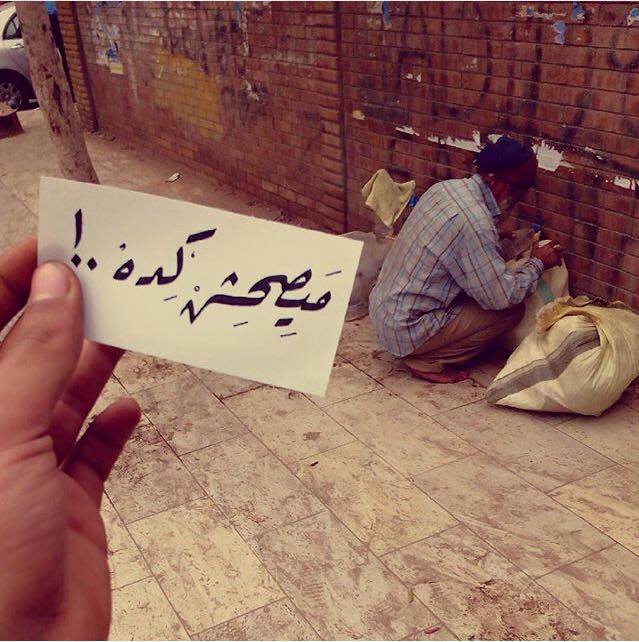 مَيِصحِشْ كِدهْ ..!